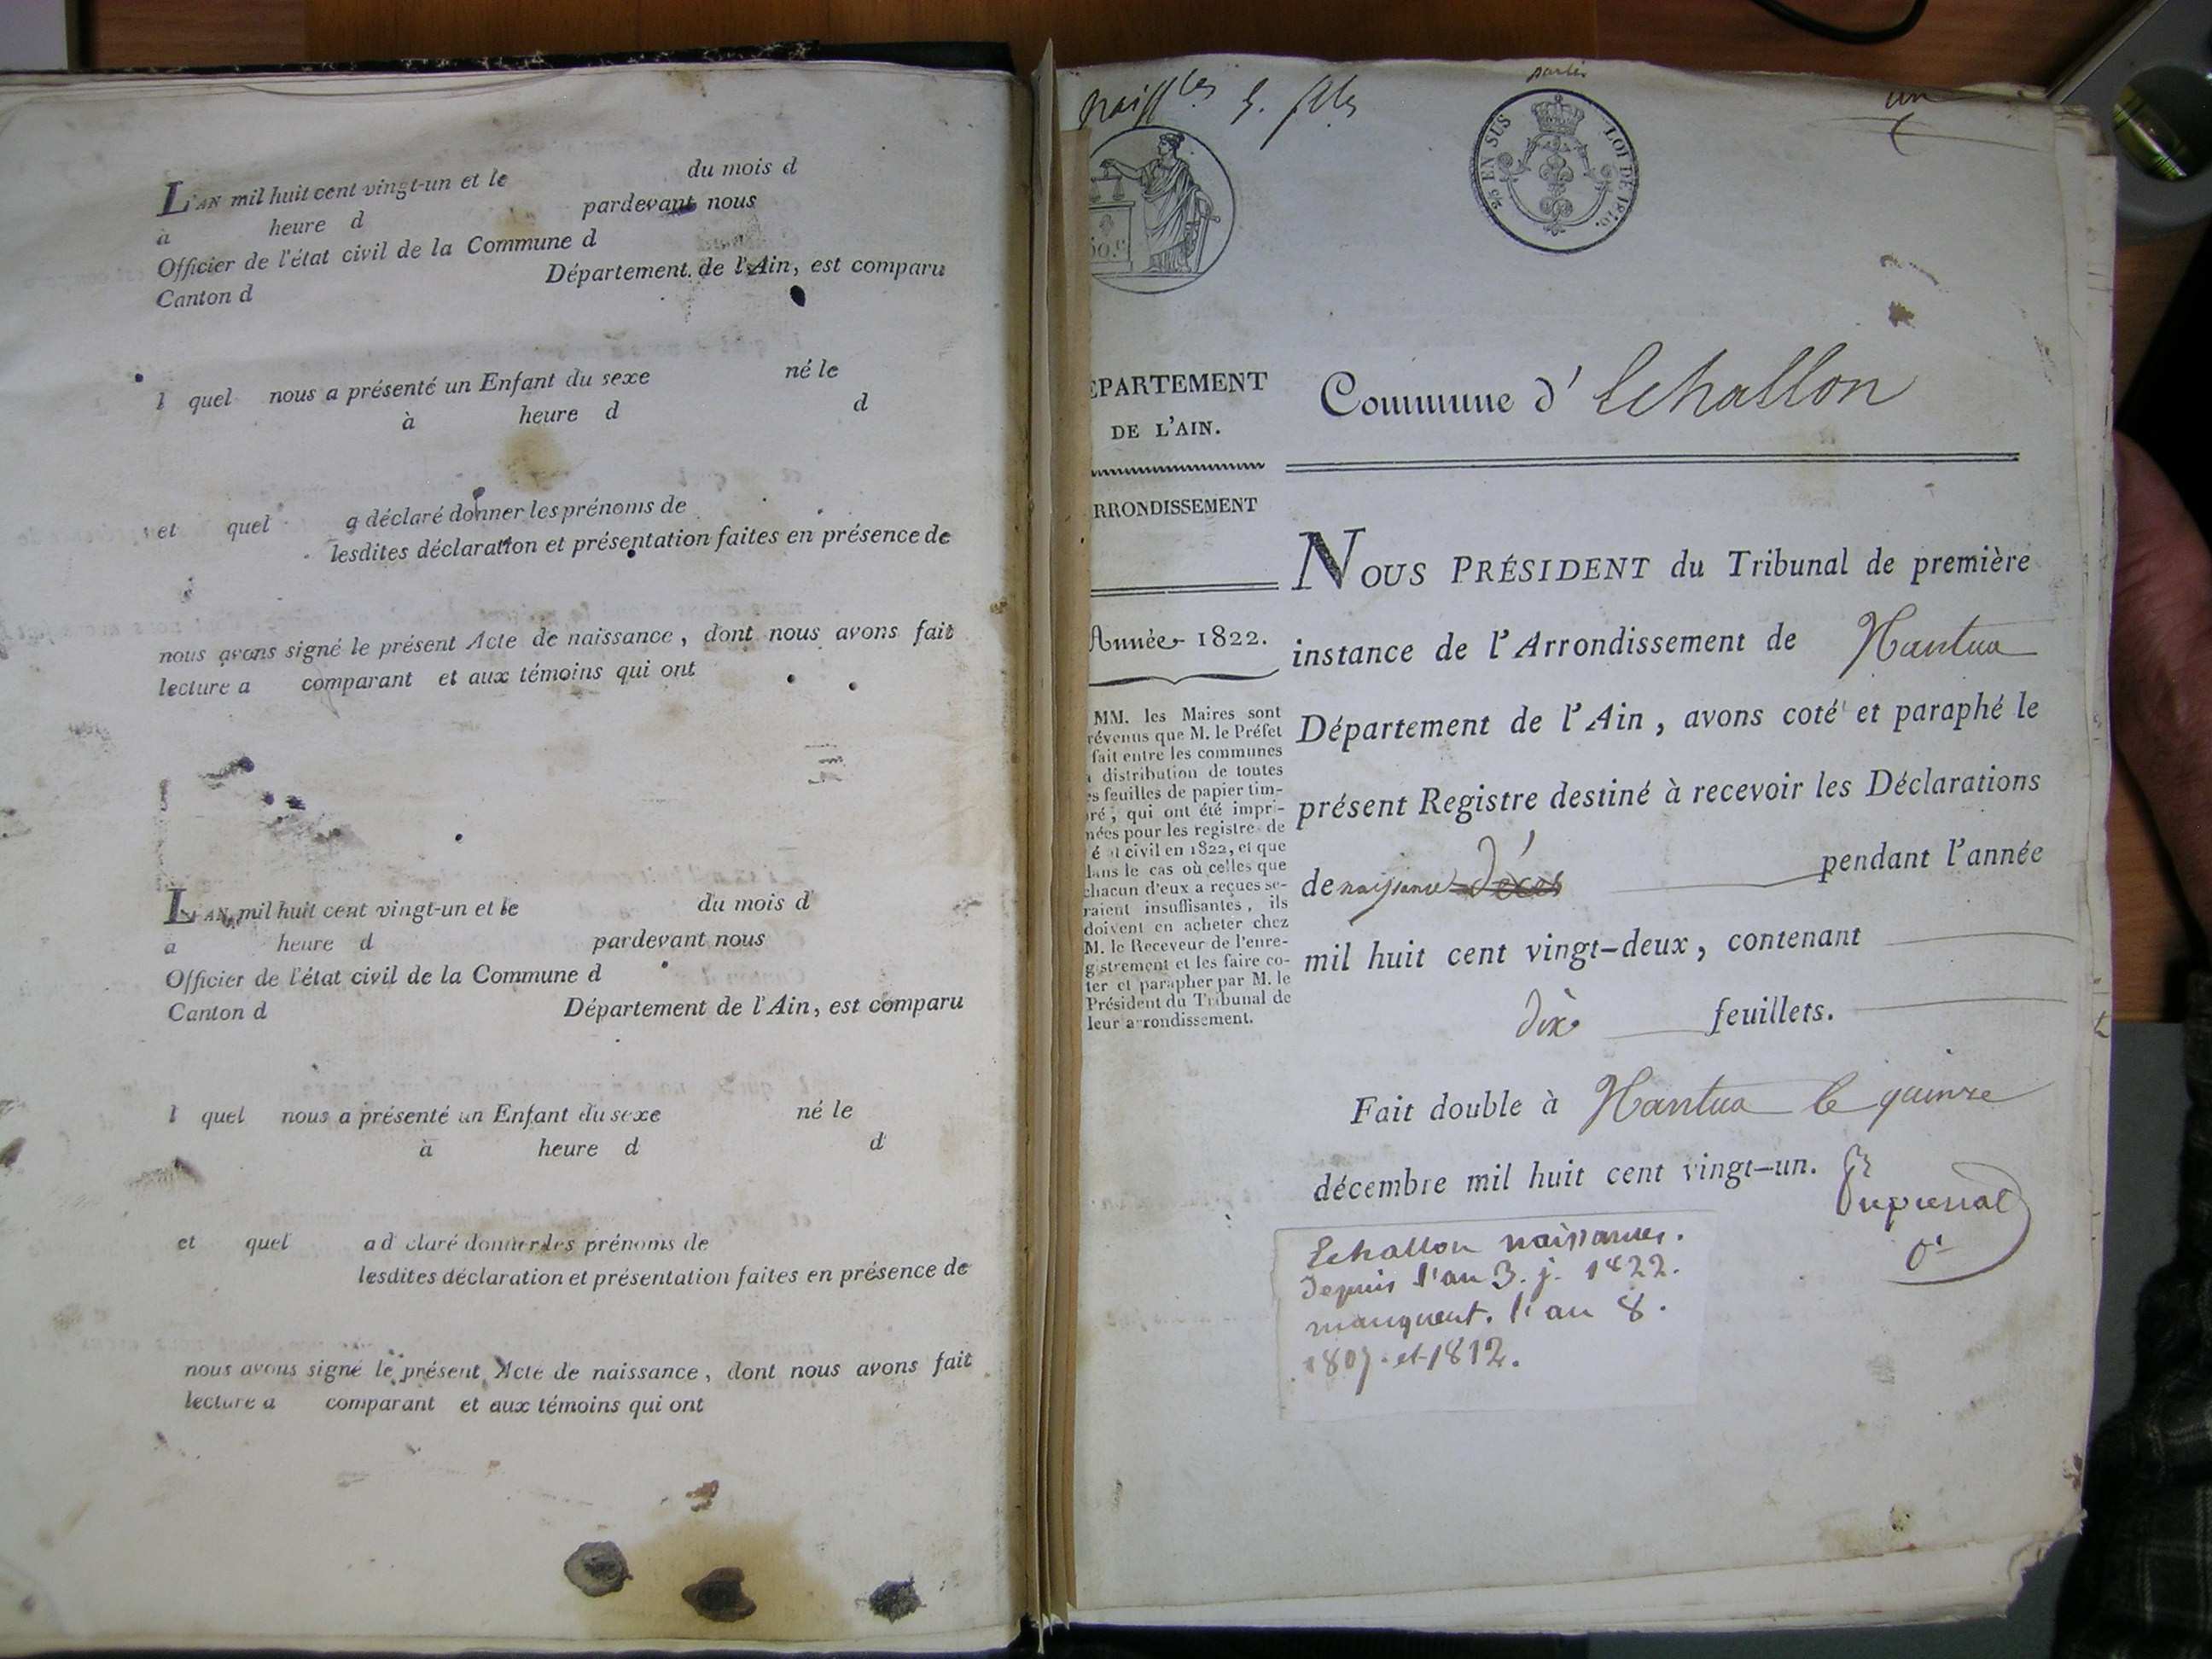 L'AN mil huit cent vingt-un et le du mois d
à heure d pardevant nous
Officier de l'état civil de la Commune d
Canton d Département de l'Ain, est comparu
l quel nous a présenté un Enfant du sexe né le
à heure d d
et quel a déclaré donner les prénoms de
lesdites déclaration et présentation faites en présence de
nous avons signé le présent Acte de naissance, dont nous avons fait
lecture a comparant et aux témoins qui ont
L'AN mil huit cent vingt-un et le du mois d
à heure d pardevant nous
Officier de l'état civil de la Commune d
Canton d Département de l'Ain, est comparu
l quel nous a présenté un Enfant du sexe né le
à heure d d
et quel a déclaré donner les prénoms de
lesdites déclaration et présentation faites en présence de
nous avons signé le présent Acte de naissance, dont nous avons fait
lecture a comparant et aux témoins qui ont
un
EN SUS LOI DE 1816.
50.c
EPARTEMENT
DE L'AIN.
RRONDISSEMENT
Année 1822.
MM. les Maires sont
révenus que M. le Préfet
fait entre les communes
a distribution de toutes
es feuilles de papier tim-
bré, qui ont été impri-
mées pour les registres de
état civil en 1822, et que
dans le cas où celles que
chacun d'eux a reçues se-
raient insuffisantes, ils
doivent en acheter chez
M. le Receveur de l'enre-
gistrement et les faire co-
ter et parapher par M. le
Président du Tribunal de
leur arrondissement.
Commune d'Echallon
NOUS PRÉSIDENT du Tribunal de première
instance de l'Arrondissement de Nantua
Département de l'Ain, avons coté et paraphé le
présent Registre destiné à recevoir les Déclarations
de naissance décès pendant l'année
mil huit cent vingt-deux, contenant
dix feuillets.
Fait double à Nantua le quinze
décembre mil huit cent vingt-un.
Echallon naissances.
Depuis l'an 3. j. 1822.
manquent. l'an 8.
1807. et 1812.